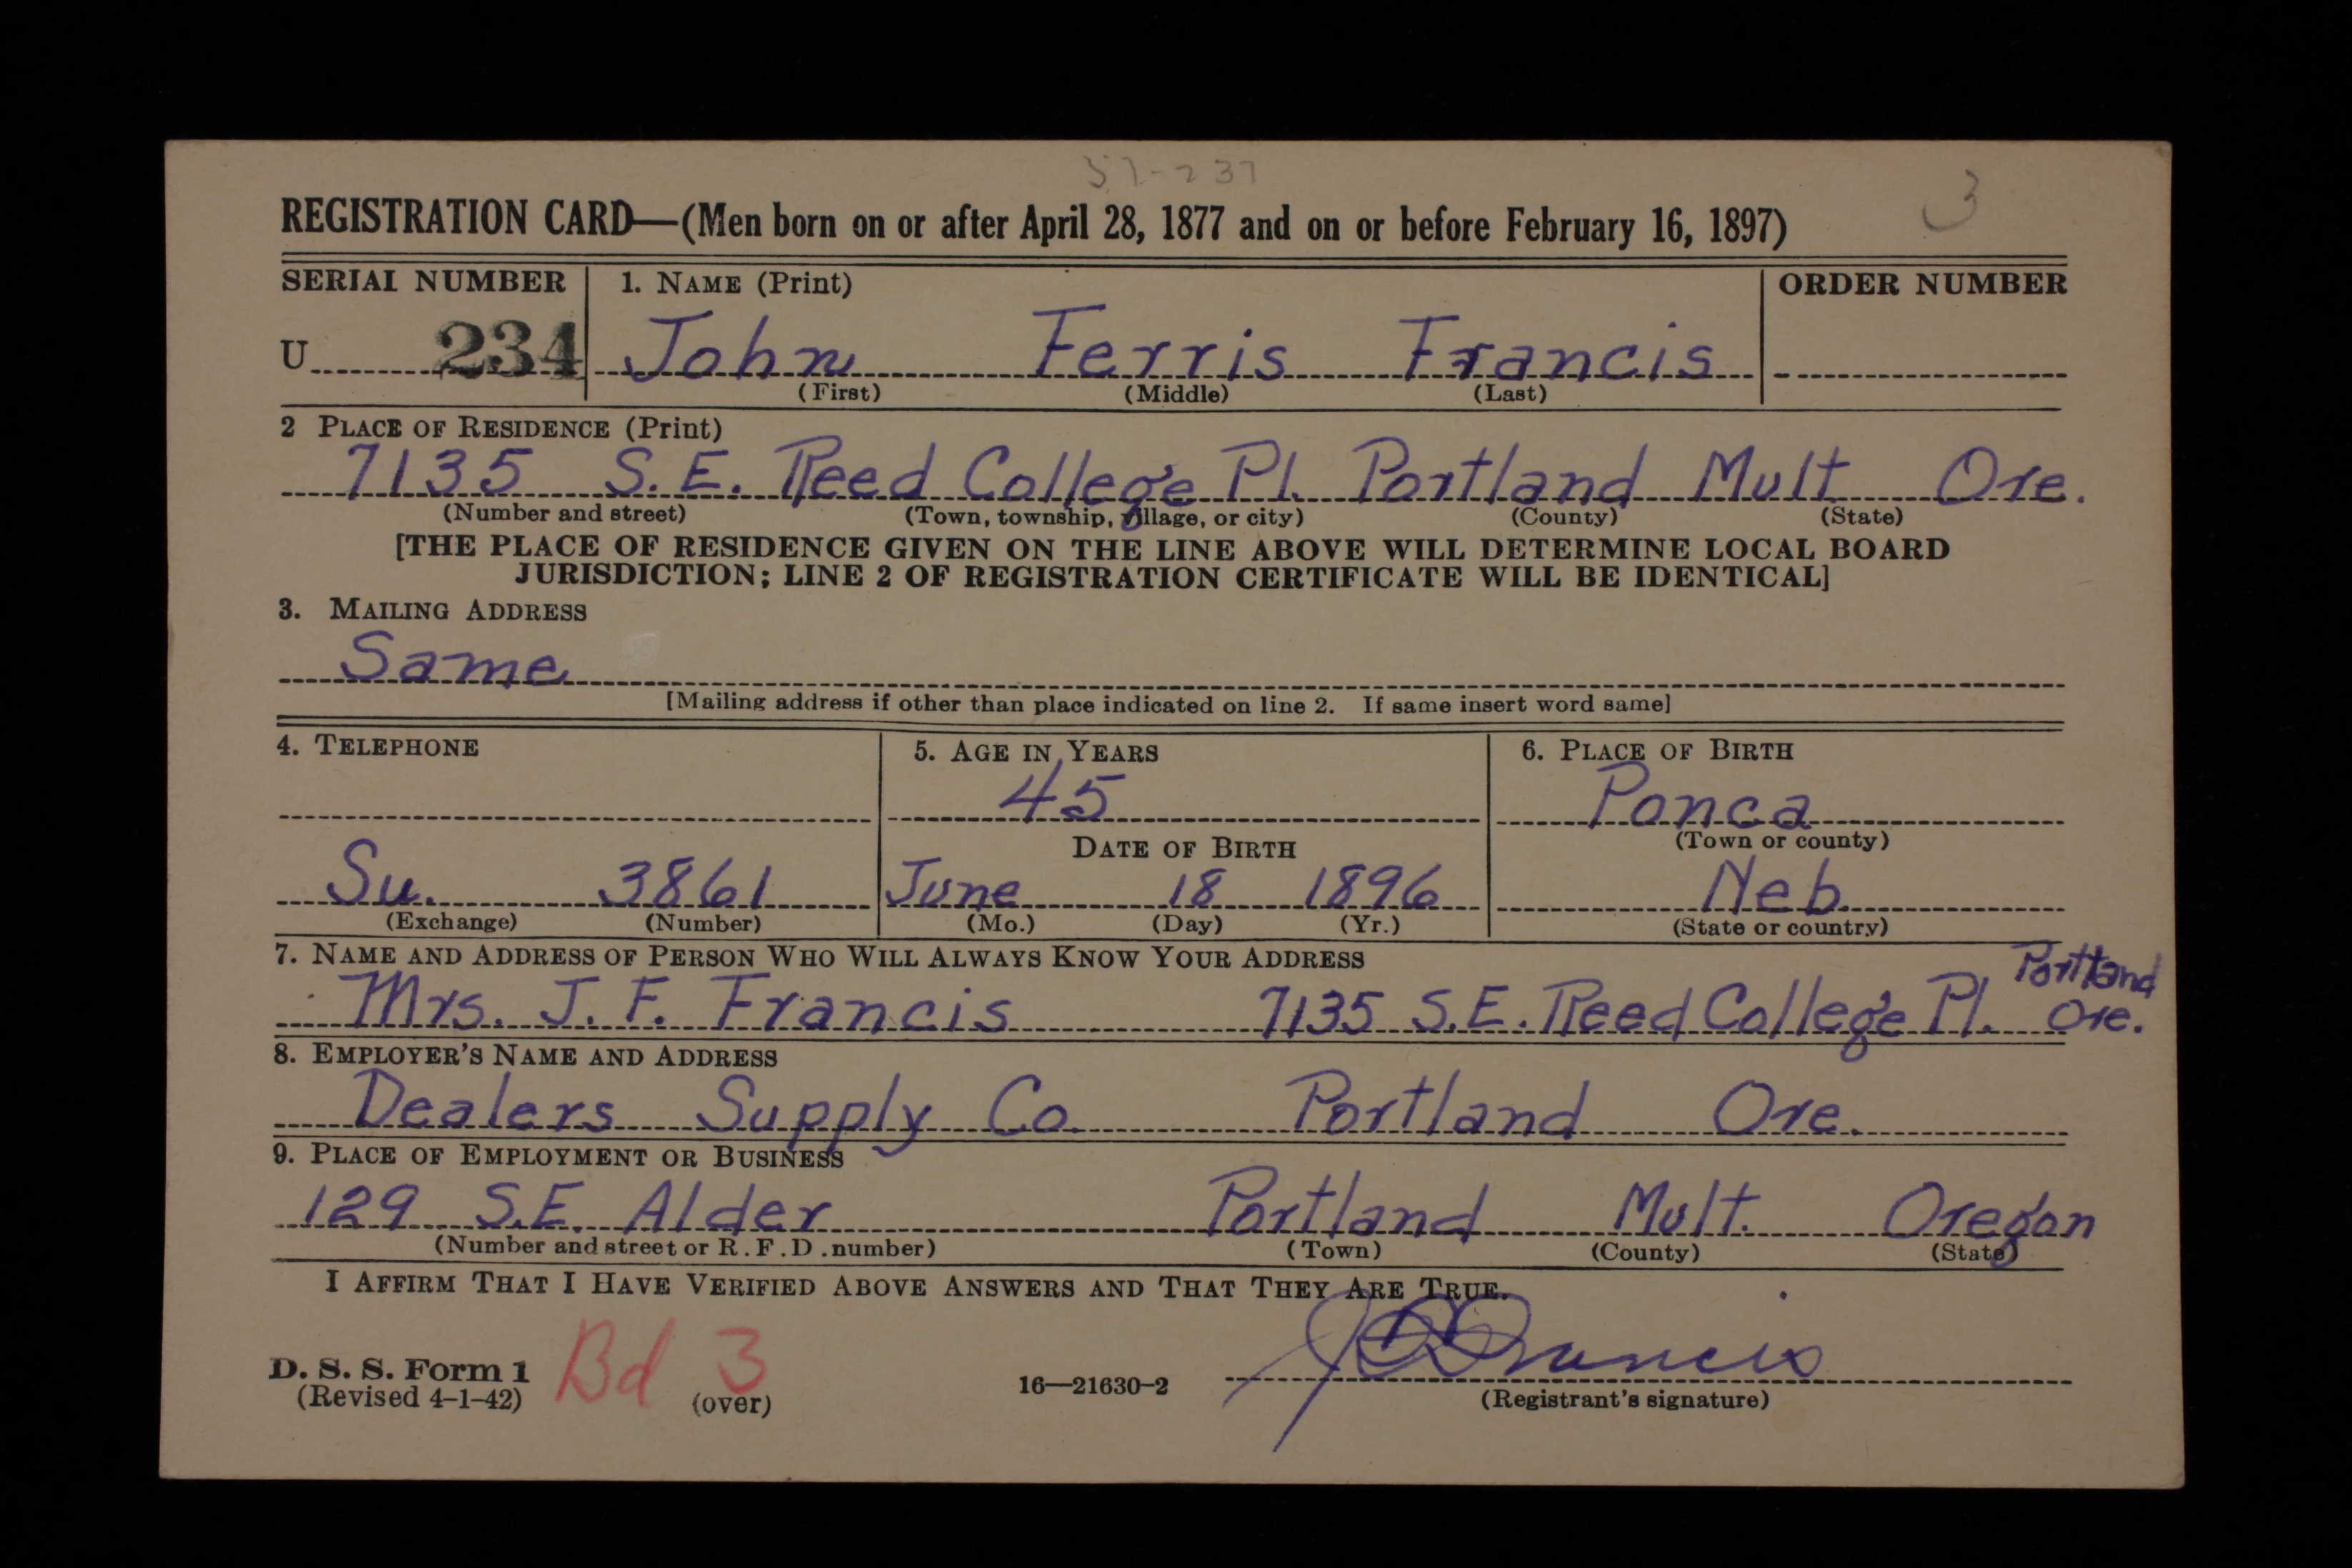 57-237
3
REGISTRATION CARD—(Men born on or after April 28, 1877 and on or before February 16, 1897)
SERIAL NUMBER 1. NAME (Print) ORDER NUMBER
U 234 John Ferris Francis
(First) (Middle) (Last)
2 PLACE OF RESIDENCE (Print)
7135 S.E. Reed College Pl. Portland Mult. Ore.
(Number and street) (Town, township, village, or city) (County) (State)
[THE PLACE OF RESIDENCE GIVEN ON THE LINE ABOVE WILL DETERMINE LOCAL BOARD
JURISDICTION; LINE 2 OF REGISTRATION CERTIFICATE WILL BE IDENTICAL]
3. MAILING ADDRESS
Same
[Mailing address if other than place indicated on line 2. If same insert word same]
4. TELEPHONE 5. AGE IN YEARS 6. PLACE OF BIRTH
45 Ponca
DATE OF BIRTH (Town or county)
Su. 3861 June 18 1896 Neb.
(Exchange) (Number) (Mo.) (Day) (Yr.) (State or country)
7. NAME AND ADDRESS OF PERSON WHO WILL ALWAYS KNOW YOUR ADDRESS
Mrs. J. F. Francis 7135 S.E. Reed College Pl. Portland Ore.
8. EMPLOYER'S NAME AND ADDRESS
Dealers Supply Co. Portland Ore.
9. PLACE OF EMPLOYMENT OR BUSINESS
129 S.E. Alder Portland Mult. Oregon
(Number and street or R.F.D. number) (Town) (County) (State)
I AFFIRM THAT I HAVE VERIFIED ABOVE ANSWERS AND THAT THEY ARE TRUE.
J F Francis
D. S. S. Form 1 Bd 3
(Revised 4-1-42) (over) 16—21630-2 (Registrant's signature)